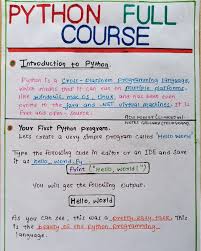 PYTHON FULL
COURSE
Introduction to Python.
Python Is a Cross-Platform Programming Language,
which means that It can run on multiple platforms
like windows, mac os, linux and has even been
ported to the java and .NET virtual machines. It is
free and open-source.
Your First Python program.
Lets create a very simple program called "Hello World"
Type the following code in editor or an IDE and save
it as hello_world.py
Print ("Hello, world!")
You will get the following output.
Hello, world
As you can see, this was a pretty easy task. This
is the beauty of the python programming
language.